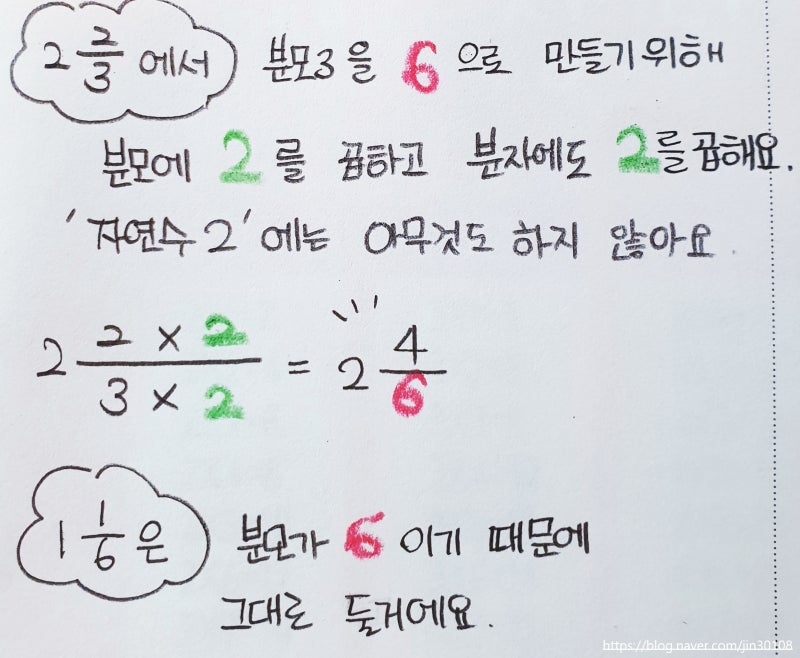 2 2/3 에서 분모3을 6으로 만들기위해
분모에 2를 곱하고 분자에도 2를곱해요.
'자연수 2'에는 아무것도 하지 않아요.
2 (2 × 2)/(3 × 2) = 2 4/6
1 1/6 은 분모가 6이기 때문에
그대로 둘거에요.
https://blog.naver.com/jin30108